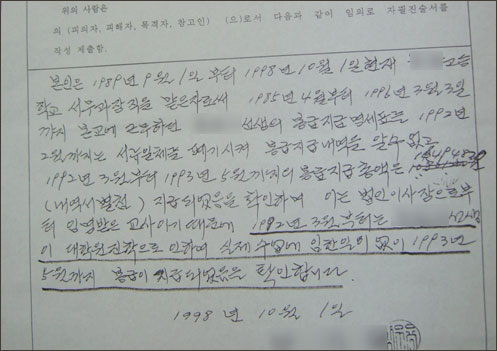 위의 사람은
의 (피의자, 피해자, 목격자, 참고인) (으)로서 다음과 같이 임의로 자필진술서를
작성 제출함.
본인은 1989년 9월 1일 부터 1998년 10월 1일 현재 고등
학교 서무과장직을 맡은자로써 1985년 4월부터 1996년 3월 3일
까지 본교에 근무하던 선생의 봉급지급명세표를 1992년
2월까지는 서류일체를 폐기시켜 봉급지급내역을 알수 없고
1992년 3월부터 1993년 5월까지의 봉급지급총액은
(내역서별첨) 지급되었음을 확인하며 이는 법인이사장으로부
터 임명받은 교사이기 때문에 1992년 3월부터는 선생
이 대학원진학으로 인하여 실제 수업에 임한일이 없이 1993년
5월까지 봉급이 지급되었음을 확인합니다.
1998 년 10월 1일